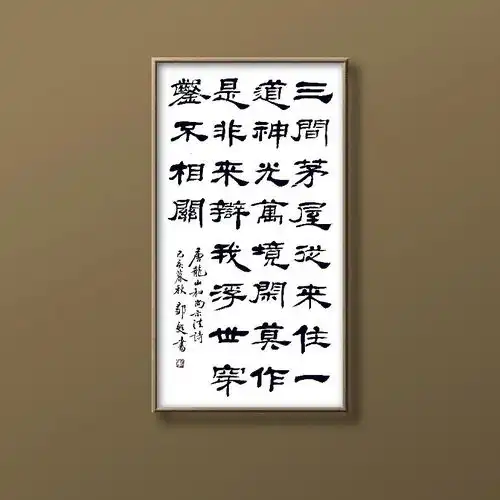 三間茅屋從来住一
道神光萬境閑莫作
是非来辯我浮世穿
鑿不相關
唐龍山和尚示法詩
己亥暮秋 書